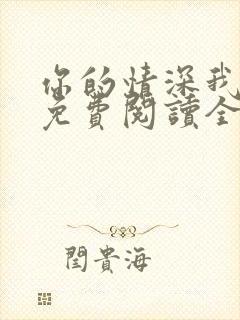 你的情深我
免費閱讀全
閏貴海